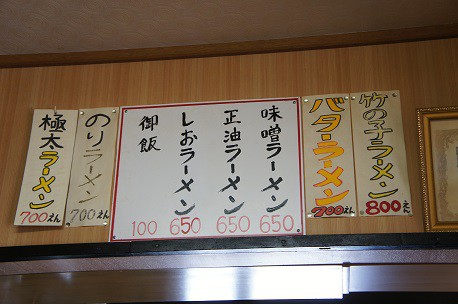 竹の子ラーメン 800えん
バターラーメン 700えん
味噌ラーメン 650
正油ラーメン 650
しおラーメン 650
御飯 100
のりラーメン 700えん
極太ラーメン 700えん